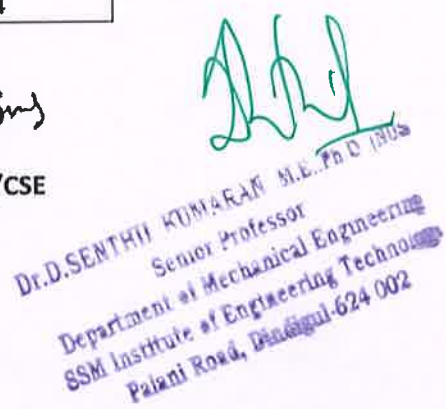 /CSE
Dr.D.SENTHIL KUMARAN M.E.,Ph.D (NUS
Senior Professor
Department of Mechanical Engineering
SSM Institute of Engineering Technology
Palani Road, Dindigul-624 002